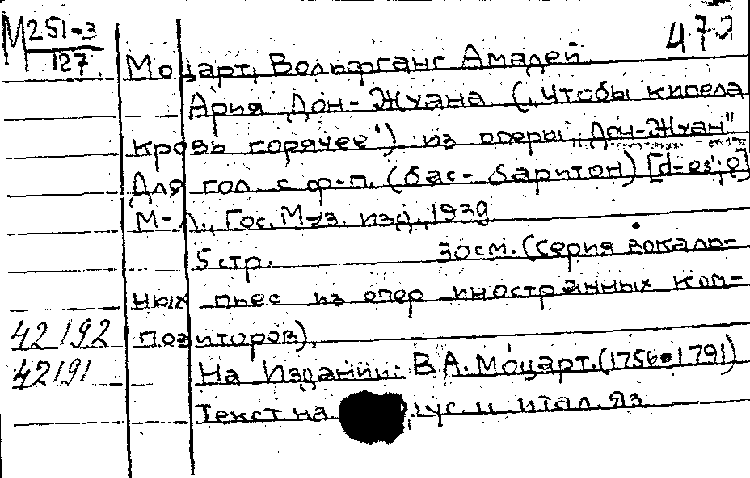 М 251-3
127
Моцарт, Вольфганг Амадей.
Ария Дон-Жуана („Чтобы кипела
кровь горячее") из оперы „Дон-Жуан"
Для гол. с ф-п. (бас-баритон)
М-Л., Гос. Муз. изд., 1939
5 стр. 30 см. (Серия вокаль-
ных пьес из опер иностранных ком-
42192 позиторов).
42191 На Издании: В.А. Моцарт. (1756-1791)
Текст на рус. и итал. яз.